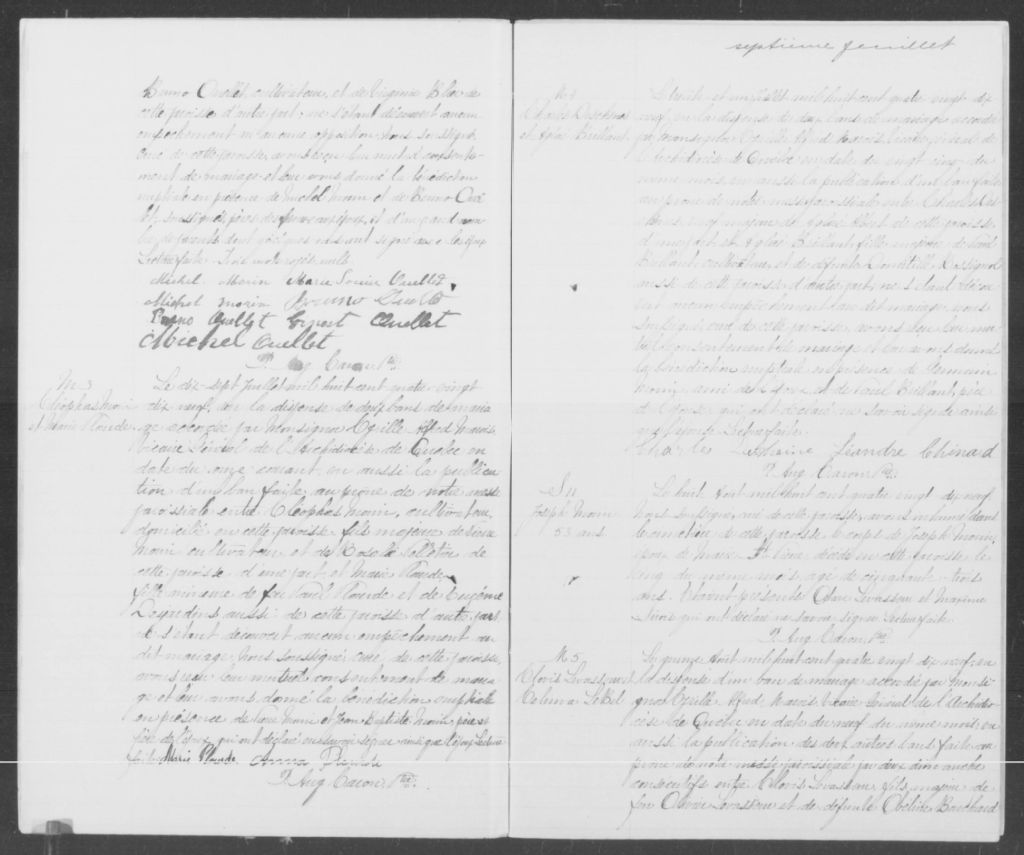 Bruno Ouellet, cultivateur, et de Virginie
cette paroisse d'autre part; ne s'étant découvert aucun
empêchement ni aucune opposition, nous soussigné,
curé de cette paroisse, avons reçu leur mutuel consente-
ment de mariage et leur avons donné la bénédiction
nuptiale en présence de Michel Morin et de Bruno Ouel-
let, soussignés, pères des époux, et d'un grand nom-
bre de parents dont quelques uns ont signé avec les époux
Lecture faite.
Michel Morin Marie Louise Ouellet
Michel Morin Bruno Ouellet
Bruno Ouellet Ernest Ouellet
Michel Ouellet
P. Aug. Caron Ptre.
M 3
Cléophas Morin
et Marie Plourde.
Le dix-sept Juillet mil huit cent quatre-vingt
dix neuf, vu la dispense de deux bans de maria-
ge accordée par Monsignor Cyrille Alfred Marois
Vicaire Général de l'Archidiocèse de Québec en
date du onze courant, vu aussi la publica-
tion d'un ban faite au prône de notre messe
paroissiale entre Cléophas Morin, cultivateur,
domicilié en cette paroisse fils majeur de
Morin cultivateur et de Rosalie Pelletier de
cette paroisse d'une part, et Marie Plourde
fille mineure de feu Plourde et de Eugénie
aussi de cette paroisse d'autre part
ne s'étant découvert aucun empêchement au
dit mariage, nous soussigné curé de cette paroisse,
avons reçu leur mutuel consentement de maria-
ge et leur avons donné la bénédiction nuptiale
en présence de Morin et Jean Baptiste Morin, père et
frère de l'époux, qui ont déclaré ne savoir signer ainsi que l'époux Lecture
faite. Marie Plourde. Anna Plourde
P. Aug. Caron Ptre.
septième feuillet
M 4
Charles
et Brillant
Le trente et un Juillet mil huit cent quatre vingt dix
neuf, vu la dispense de deux bans de mariage accordée
par Monsignor Cyrille Alfred Marois, Vicaire Général de
l'Archidiocèse de Québec en date du vingt cinq du
même mois, vu aussi la publication d'un ban faite
au prône de notre messe paroissiale entre Charles
majeur de de cette paroisse
d'une part, et Brillant fille majeure de Paul
Brillant cultivateur, et de défunte
aussi de cette paroisse d'autre part, ne s'étant décou-
vert aucun empêchement au dit mariage, nous
soussigné, curé de cette paroisse, avons reçu leur mu-
tuel consentement de mariage et leur avons donné
la bénédiction nuptiale en présence de Germain
Morin, ami de l'époux, et de Paul Brillant, père
de l'épouse, qui ont déclaré ne savoir signer ainsi
que l'épouse Lecture faite.
Charles Léandre Chinard
P. Aug. Caron Ptre.
S 11
Joseph Morin
53 ans
Le huit Août mil huit cent quatre vingt dix neuf,
nous soussigné, curé de cette paroisse, avons inhumé dans
le cimetière de cette paroisse le corps de Joseph Morin,
époux de Marie décédé en cette paroisse le
cinq du même mois, âgé de cinquante-trois
ans. Etaient présents Levasseur et Maxime
qui ont déclaré ne savoir signer Lecture faite.
P. Aug. Caron Ptre.
M 5
Clovis Levasseur
LeBel
Le quinze Août mil huit cent quatre vingt dix neuf, vu
la dispense d'un ban de mariage accordée par Monsi-
gnor Cyrille Alfred Marois, Vicaire Général de l'Archidio-
cèse de Québec en date du neuf du même mois, vu
aussi la publication des deux autres bans faite au
prône de notre messe paroissiale par deux dimanches
consécutifs entre Clovis Levasseur fils majeur de
feu Levasseur et de défunte Bouchard